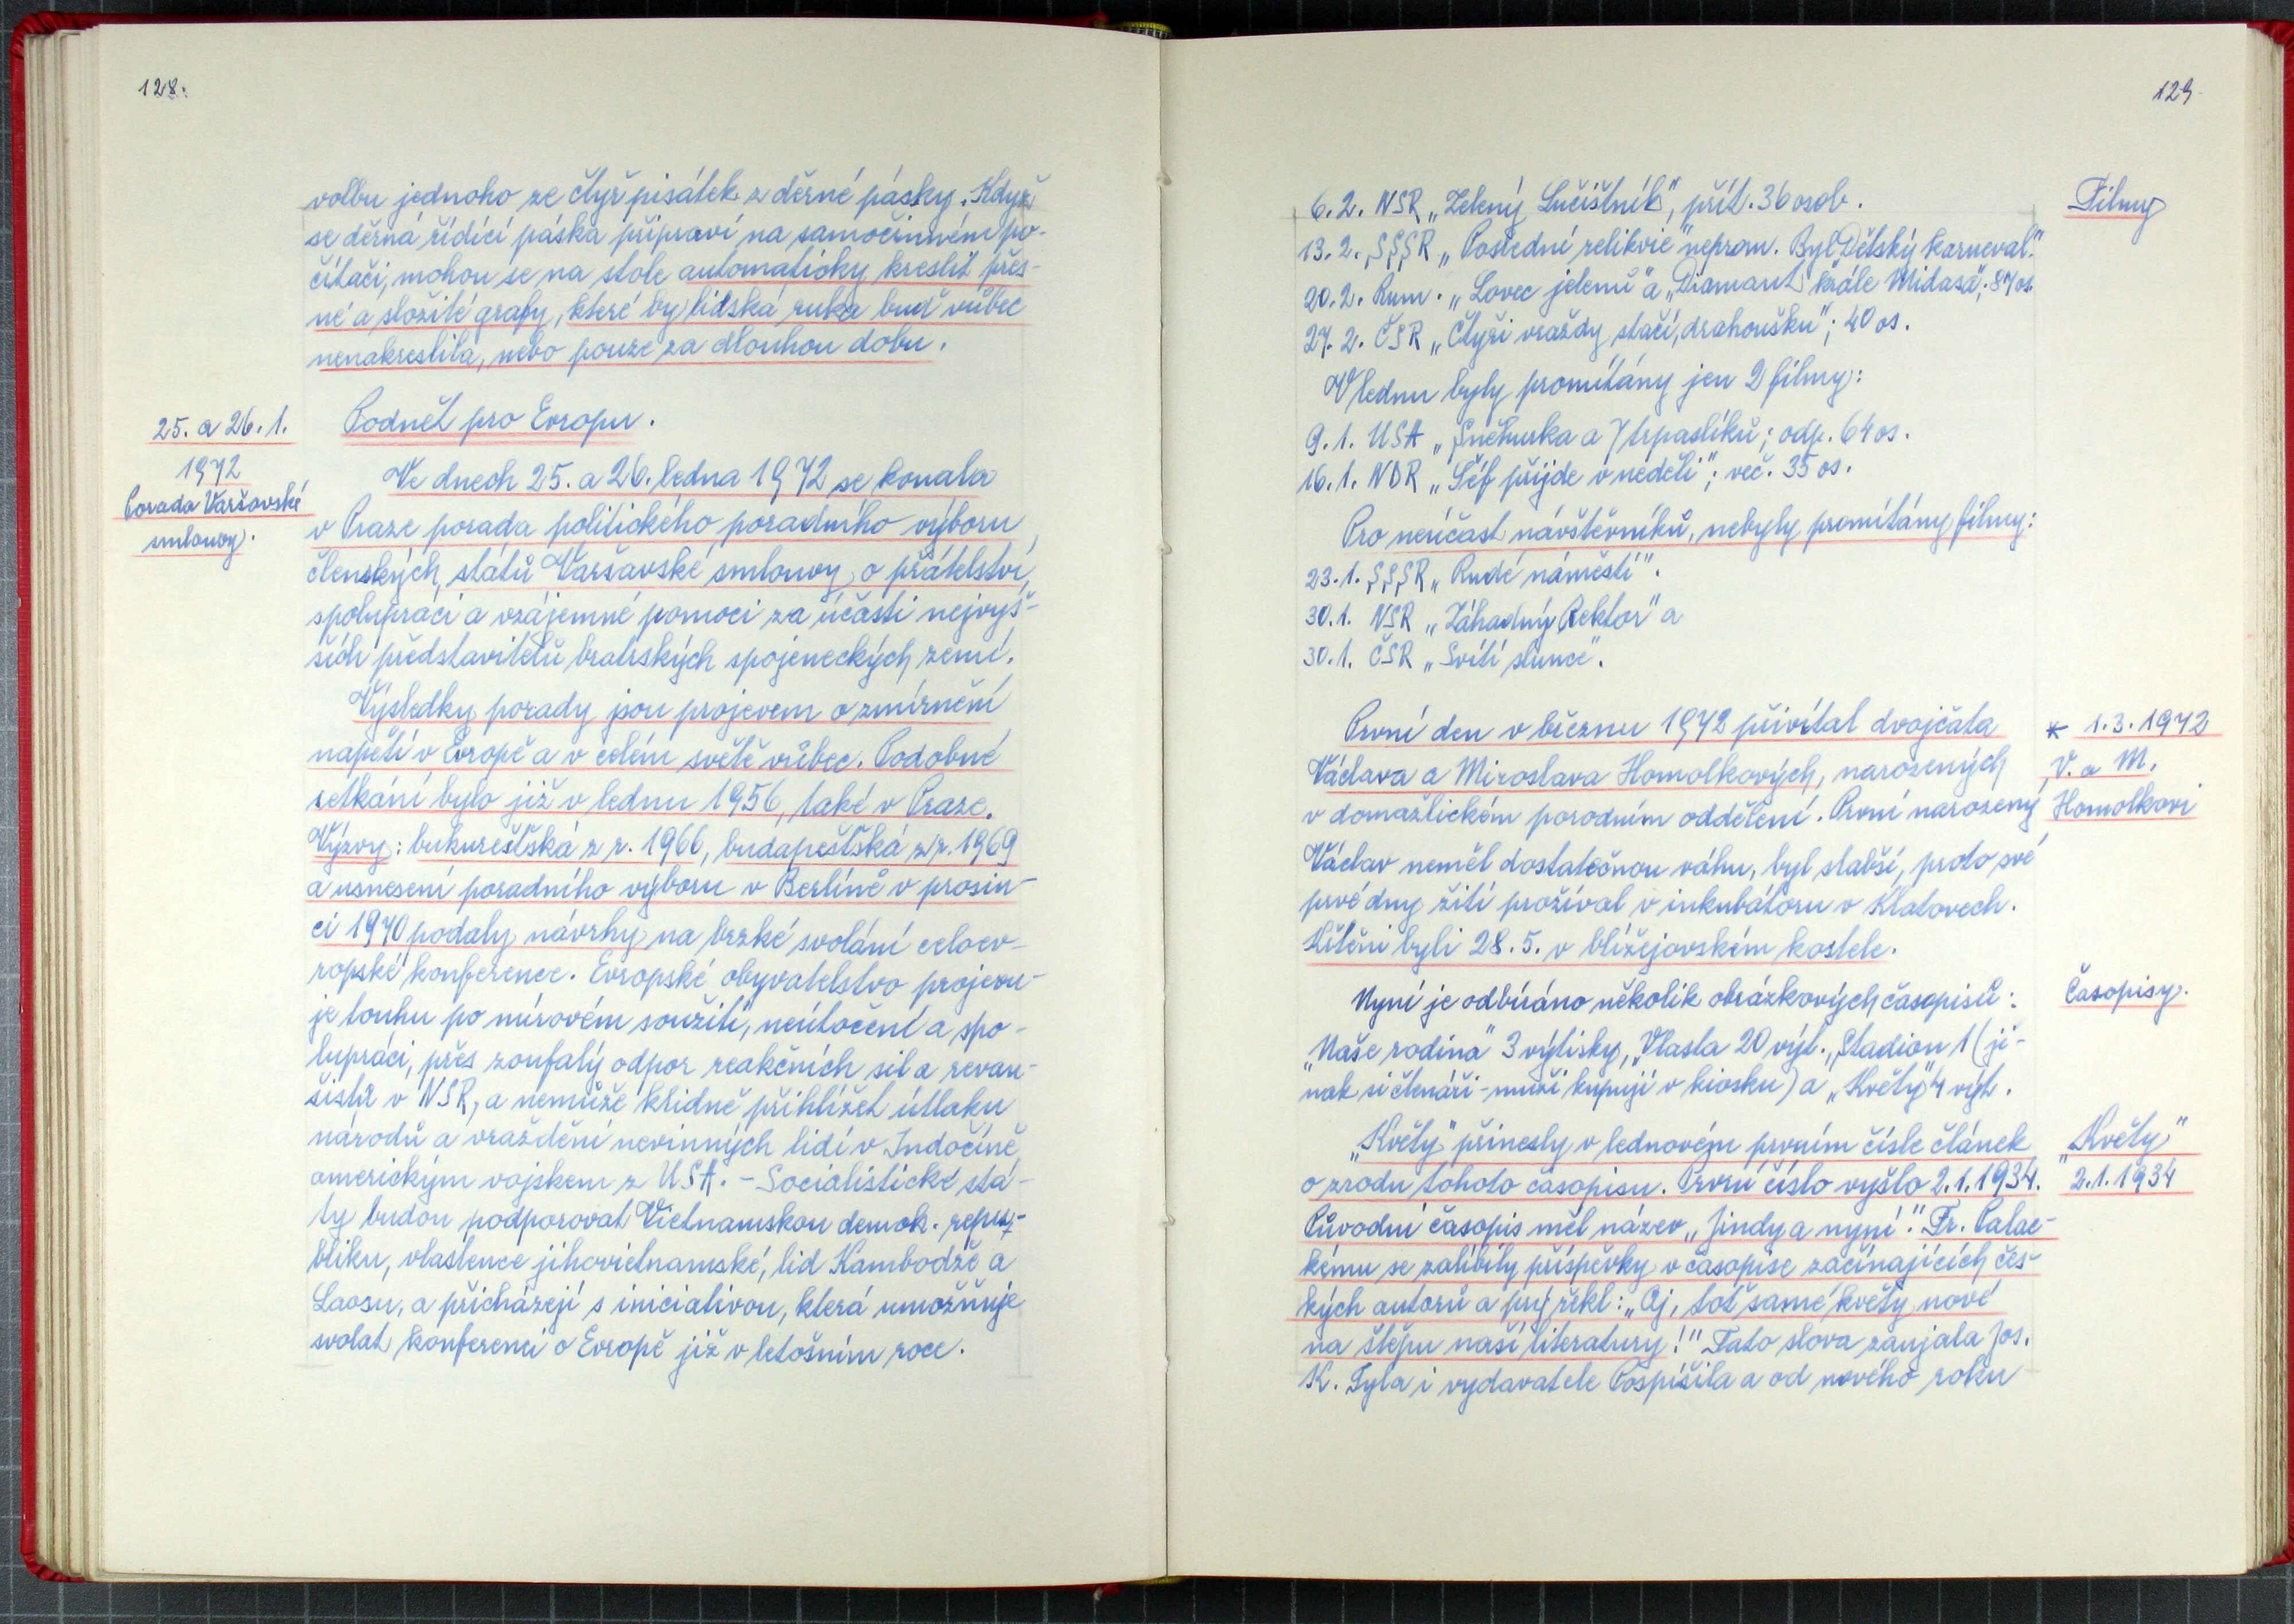 128.
volbu jednoho ze čtyř pisátek z děrné pásky. Když
se děrná řídící páska připraví na samočinném po-
čítači, mohou se na stole automaticky kreslit přes-
né a složité grafy, které by lidská ruka buď vůbec
nenakreslila, nebo pouze za dlouhou dobu.
25. a 26. 1.
1972
Porada Varšavské
smlouvy.
Podnět pro Evropu.
Ve dnech 25. a 26. ledna 1972 se konala
v Praze porada politického poradního výboru
členských států Varšavské smlouvy o přátelství,
spolupráci a vzájemné pomoci za účasti nejvyš-
ších představitelů bratrských spojeneckých zemí.
Výsledky porady jsou projevem o zmírnění
napětí v Evropě a v celém světě vůbec. Podobné
setkání bylo již v lednu 1956, také v Praze.
Výzvy: bukurešťská z r. 1966, budapešťská z r. 1969
a usnesení poradního výboru v Berlíně v prosin-
ci 1970 podaly návrhy na brzké svolání celoev-
ropské konference. Evropské obyvatelstvo projevu-
je touhu po mírovém soužití, neútočení a spo-
lupráci, přes zoufalý odpor reakčních sil a revan-
šistů v NSR, a nemůže klidně přihlížet útlaku
národů a vraždění nevinných lidí v Indočíně
americkým vojskem z USA. - Socialistické stá-
ty budou podporovat Vietnamskou demok. repu-
bliku, vlastence jihovietnamské, lid Kambodže a
Laosu, a přicházejí s iniciativou, která umožňuje
svolat konferenci o Evropě již v letošním roce.
129
Filmy
6. 2. NSR „Zelený Lučištník", přít. 36 osob.
13. 2. SSSR „Poslední relikvie" neprom. Byl „Dětský karneval."
20. 2. Rum. „Lovec jelenů" a „Diamant krále Midasa"; 87 os.
27. 2. ČSR „Čtyři vraždy stačí, drahoušku"; 40 os.
V lednu byly promítány jen 2 filmy:
9. 1. USA „Sněhurka a 7 trpaslíků; odp. 64 os.
16. 1. NDR „Šéf přijde v neděli"; več. 35 os.
Pro neúčast návštěvníků, nebyly promítány filmy:
23. 1. SSSR „Rudé náměstí".
30. 1. NSR „Záhadný Rektor" a
30. 1. ČSR „Svítí slunce".
První den v březnu 1972 přivítal dvojčata
Václava a Miroslava Homolkových, narozených
v domažlickém porodním oddělení. První narozený
Václav neměl dostatečnou váhu, byl slabší, proto své
prvé dny žití prožíval v inkubátoru v Klatovech.
Křtěni byli 28. 5. v blížejovském kostele.
* 1. 3. 1972
V. a M.
Homolkovi
Nyní je odbíráno několik obrázkových časopisů:
„Naše rodina" 3 výtisky, „Vlasta 20 výt., „Stadion 1 (ji-
nak si čtenáři-muži kupují v kiosku) a „Květy" 4 výt.
Časopisy.
„Květy" přinesly v lednovém prvním čísle článek
o zrodu tohoto časopisu. První číslo vyšlo 2. 1. 1934.
Původní časopis měl název „Jindy a nyní". Fr. Palac-
kému se zalíbily příspěvky v časopise začínajících čes-
kých autorů a prý řekl: „Aj, toť samé květy nové
na štěpu naší literatury!" Tato slova zaujala Jos.
K. Tyla i vydavatele Pospíšila a od nového roku
„Květy"
2. 1. 1934